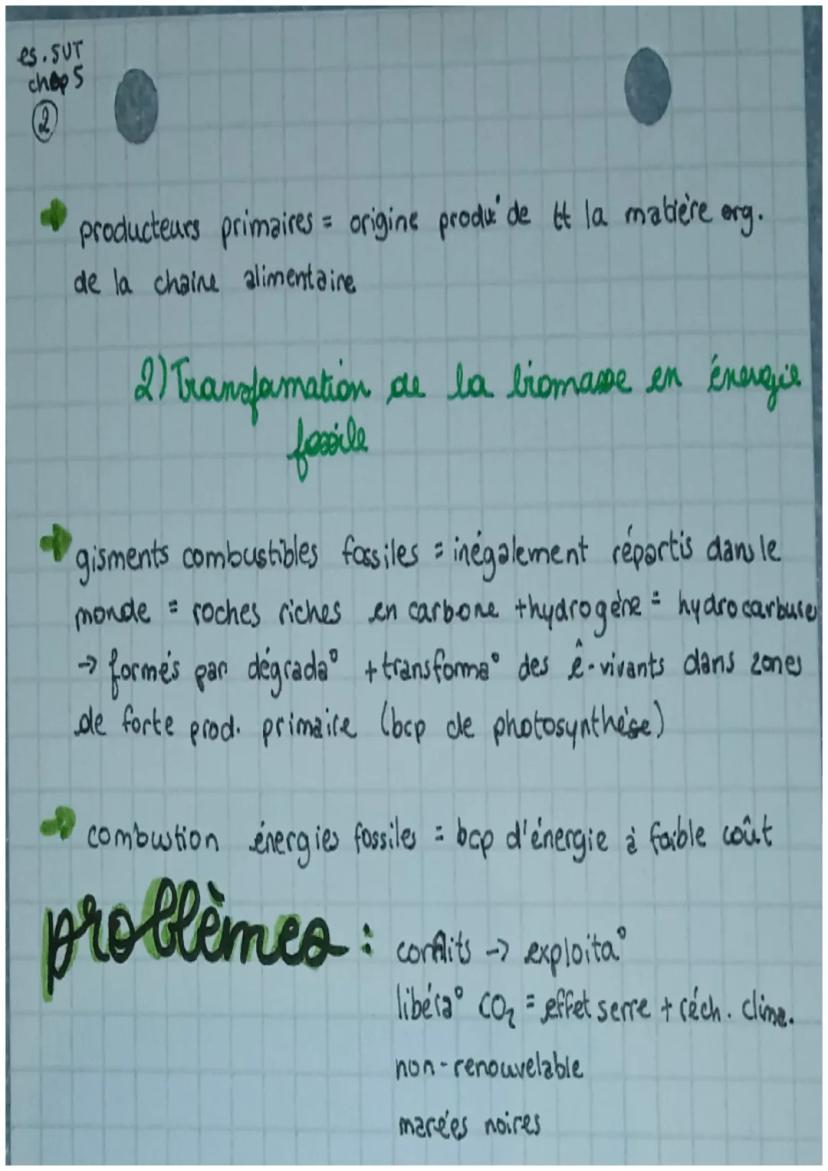 es. SVT
chap 5
2
producteurs primaires = origine produ° de tt la matière org.
de la chaine alimentaire
2) Transformation de la biomasse en énergie
fossile
gisments combustibles fossiles = inégalement répartis dans le
monde = roches riches en carbone + hydrogène = hydrocarbure
→ formés par dégrada° + transforma° des ê-vivants dans zones
de forte prod. primaire (bcp de photosynthèse)
combustion énergies fossiles = bcp d'énergie à faible coût
problèmes : conflits → exploita°
libéra° CO₂ = effet serre + réch. clima.
non-renouvelable
marées noires